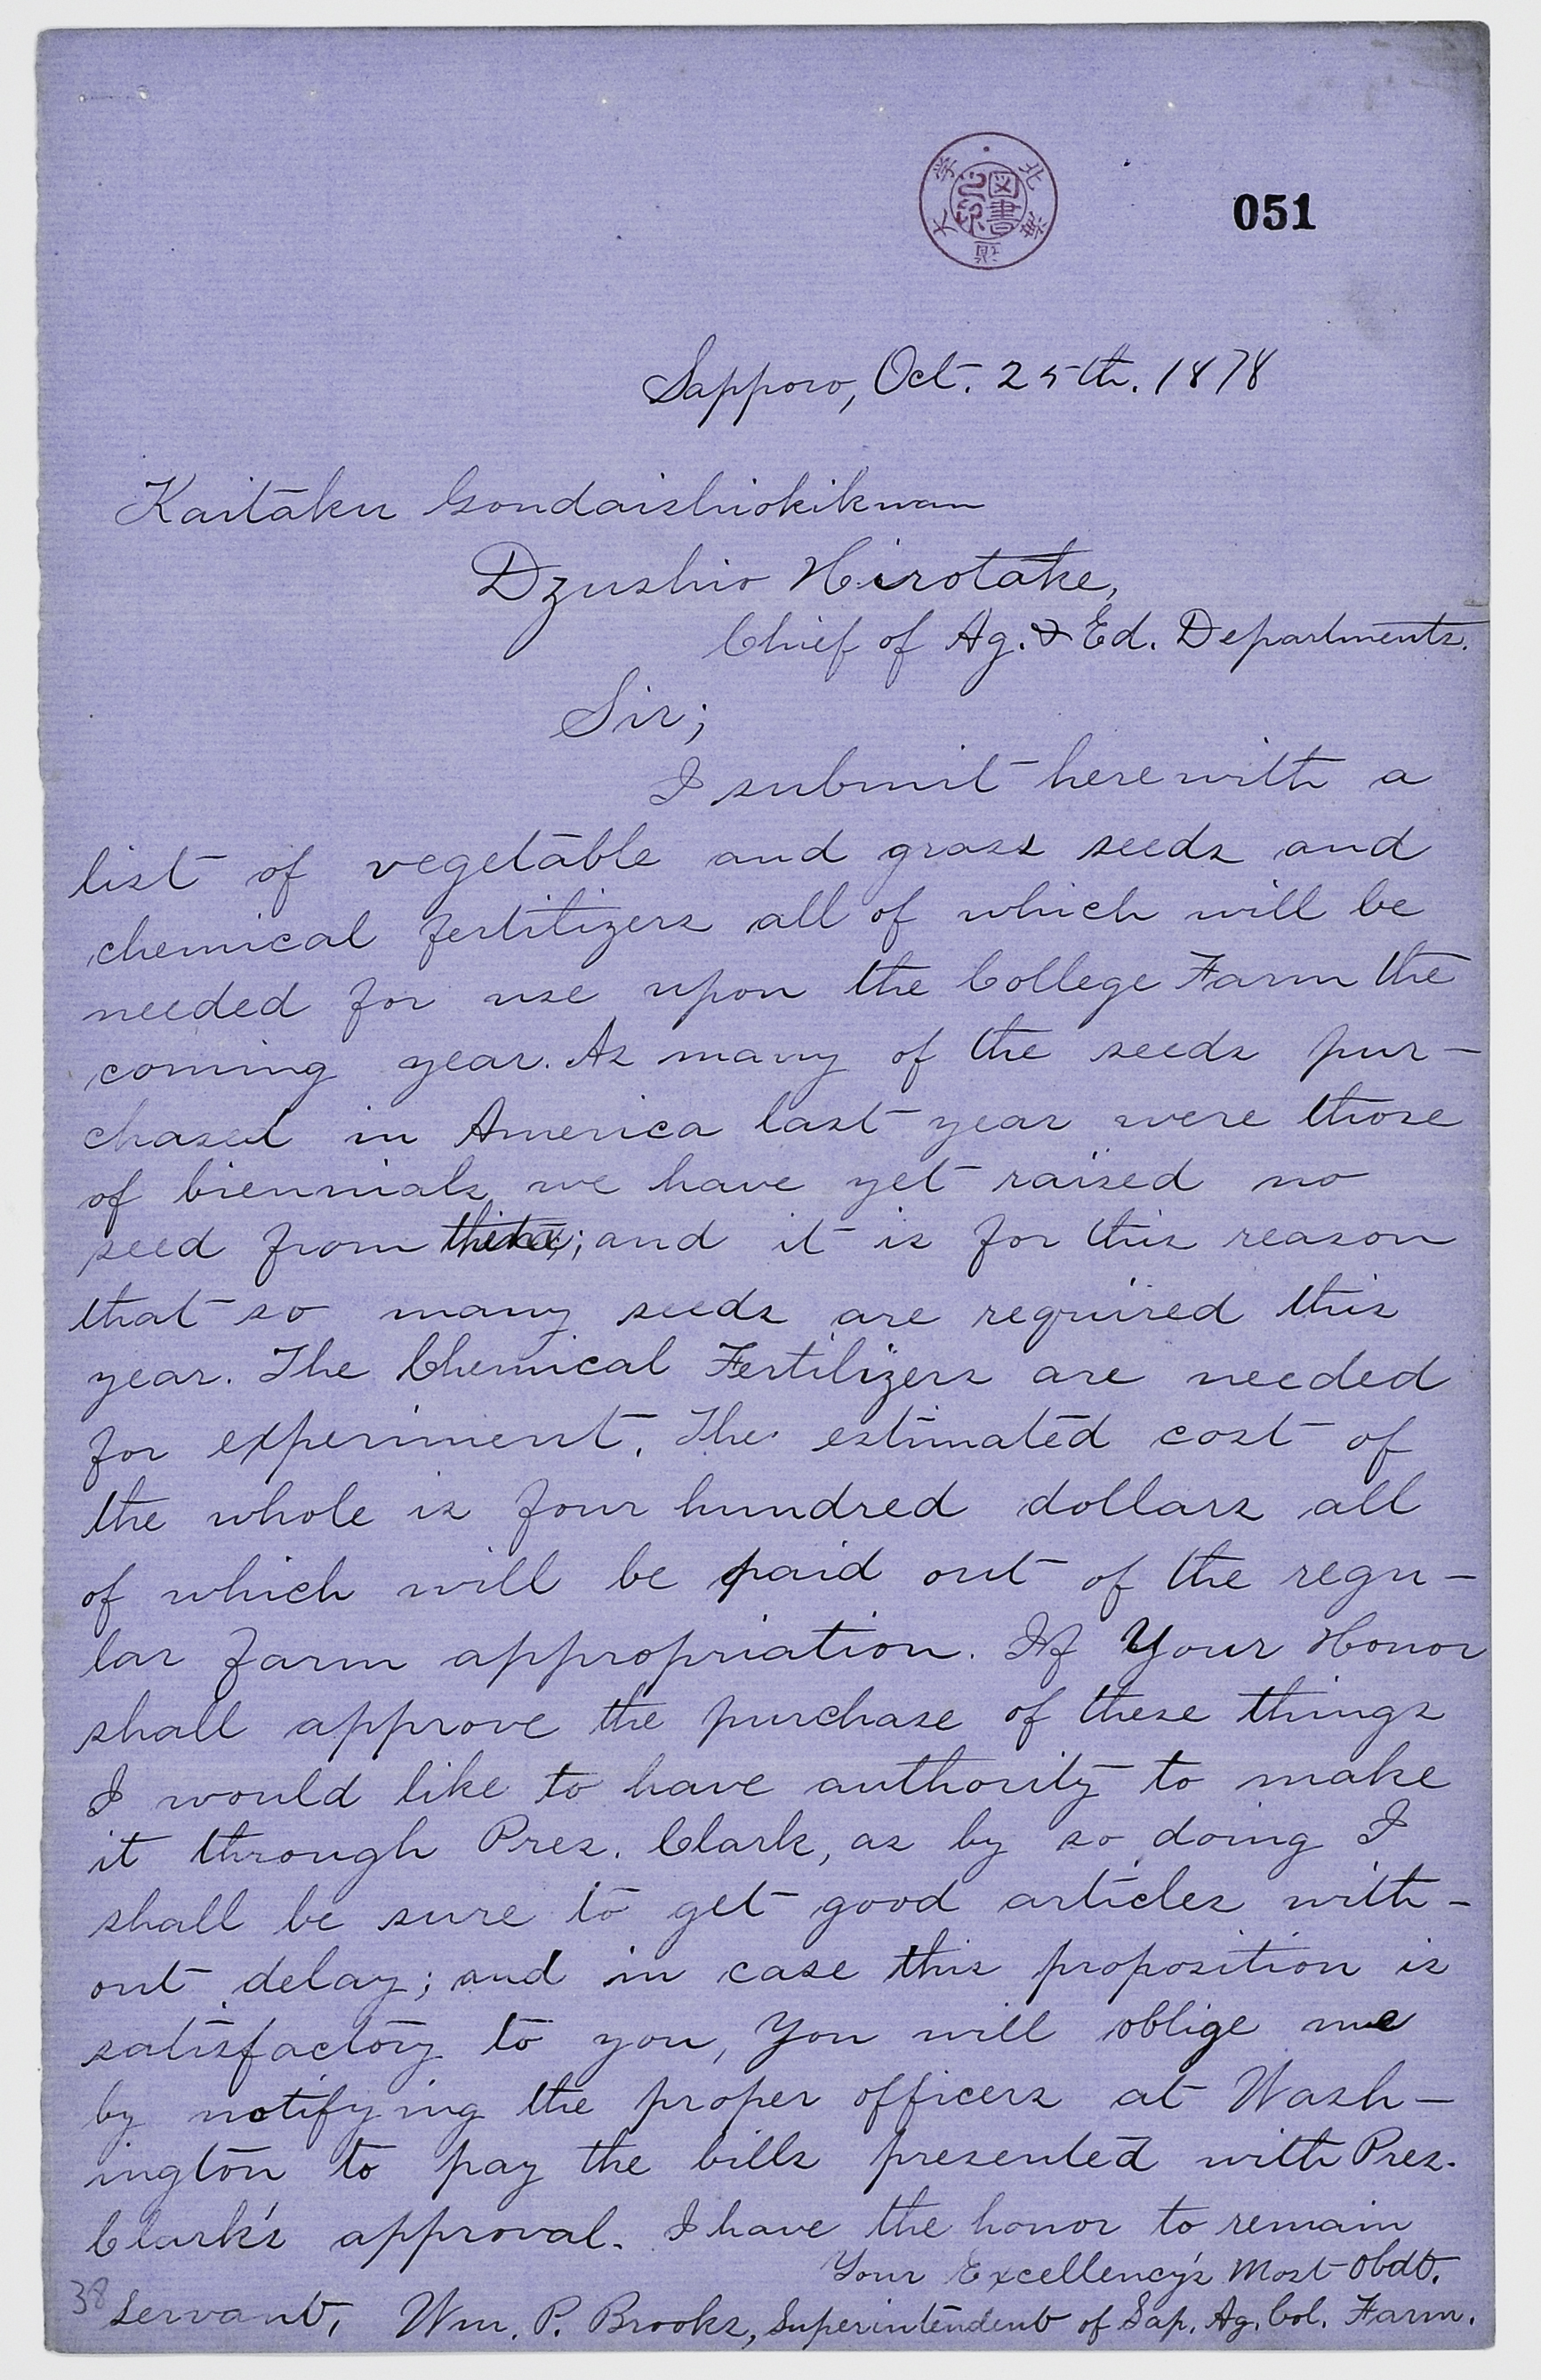 北海道大学
図書之印
051
Sapporo, Oct. 25th. 1878
Kaitaku Gondaishiokikwan
Dzushio Hirotake,
Chief of Ag. & Ed. Departments.
Sir;
I submit herewith a
list of vegetable and grass seeds and
chemical fertilizers all of which will be
needed for use upon the College Farm the
coming year. As many of the seeds pur-
chased in America last year were those
of biennials we have yet raised no
seed from ; and it is for this reason
that so many seeds are required this
year. The Chemical Fertilizers are needed
for experiment. The estimated cost of
the whole is four hundred dollars all
of which will be paid out of the regu-
lar farm appropriation. If Your Honor
shall approve the purchase of these things
I would like to have authority to make
it through Pres. Clark, as by so doing I
shall be sure to get good articles with-
out delay; and in case this proposition is
satisfactory to you, You will oblige me
by notifying the proper officers at Wash-
ington to pay the bills presented with Pres.
Clark's approval. I have the honor to remain
Your Excellency's Most Obdt.
38
Servant, Wm. P. Brooks, Superintendent of Sap. Ag. Col. Farm.